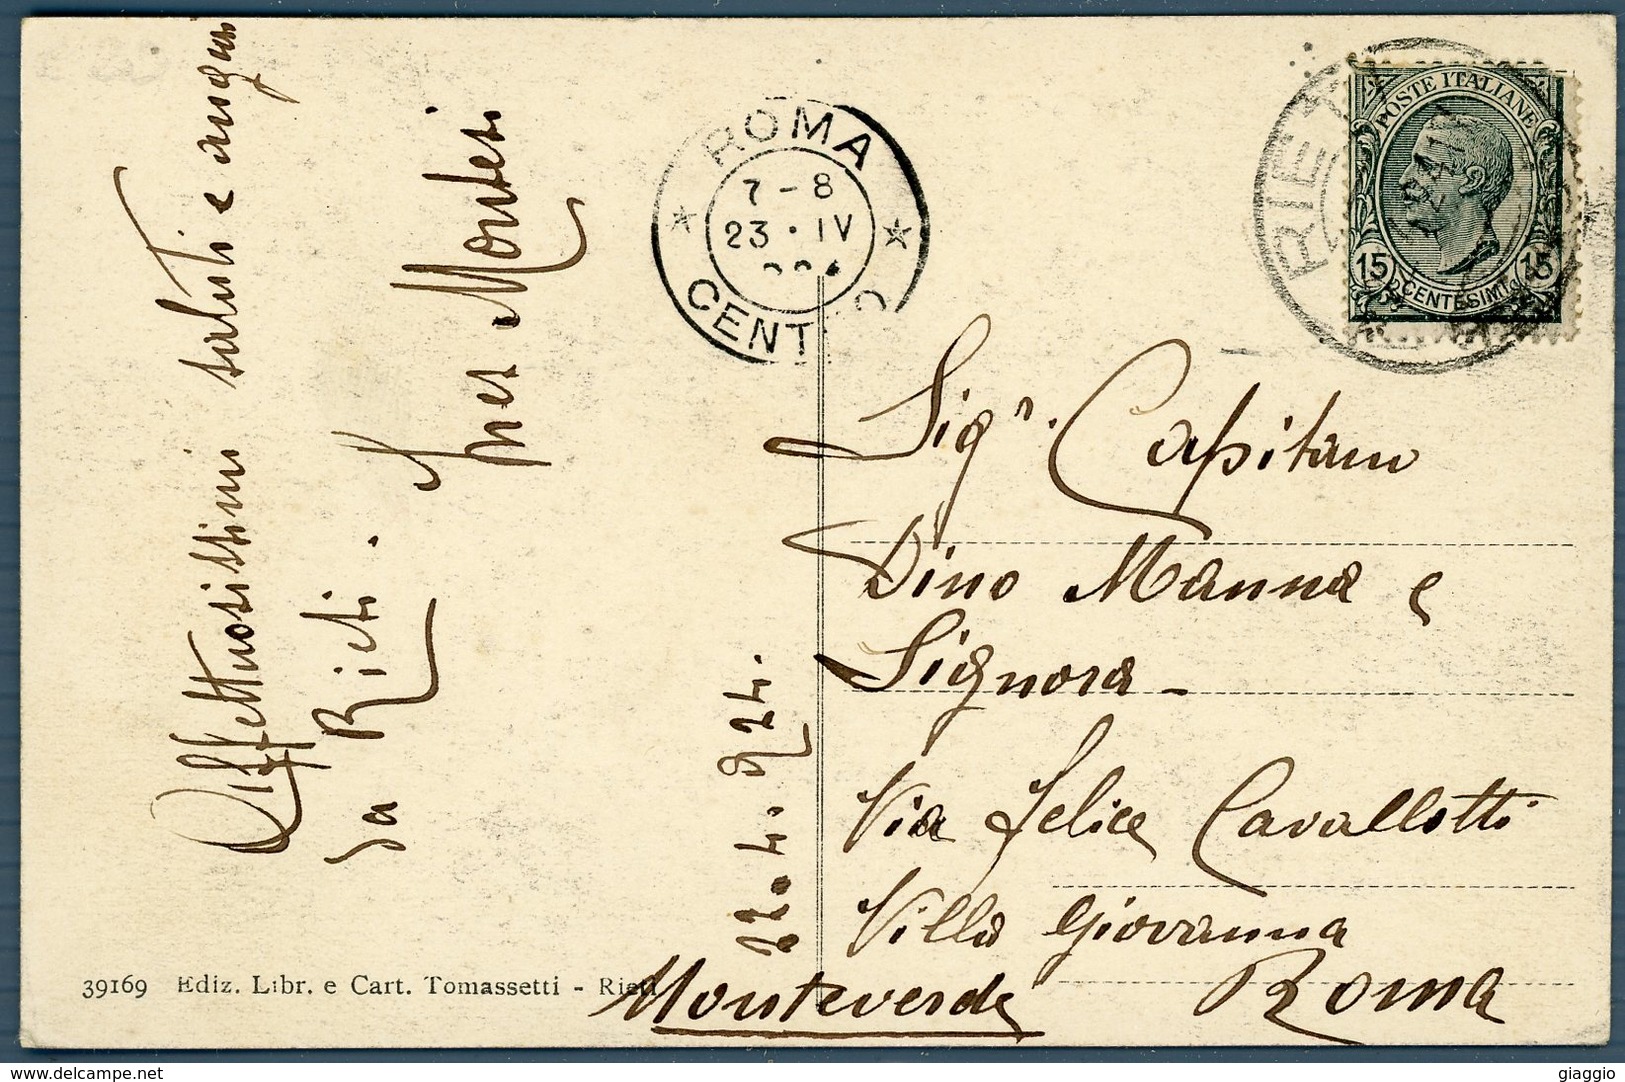 Affettuosissimi saluti e auguri
da Rieti. Ines Montesi
22.4.924.
ROMA
7-8
23·IV
CENT
RIETI
POSTE ITALIANE
15 CENTESIMI 15
Sigʳ. Capitano
Dino Manna e
Signora -
Via Felice Cavallotti
Villa Giovanna
Monteverde Roma
39169 Ediz. Libr. e Cart. Tomassetti - Rieti
delcampe.net
giaggio